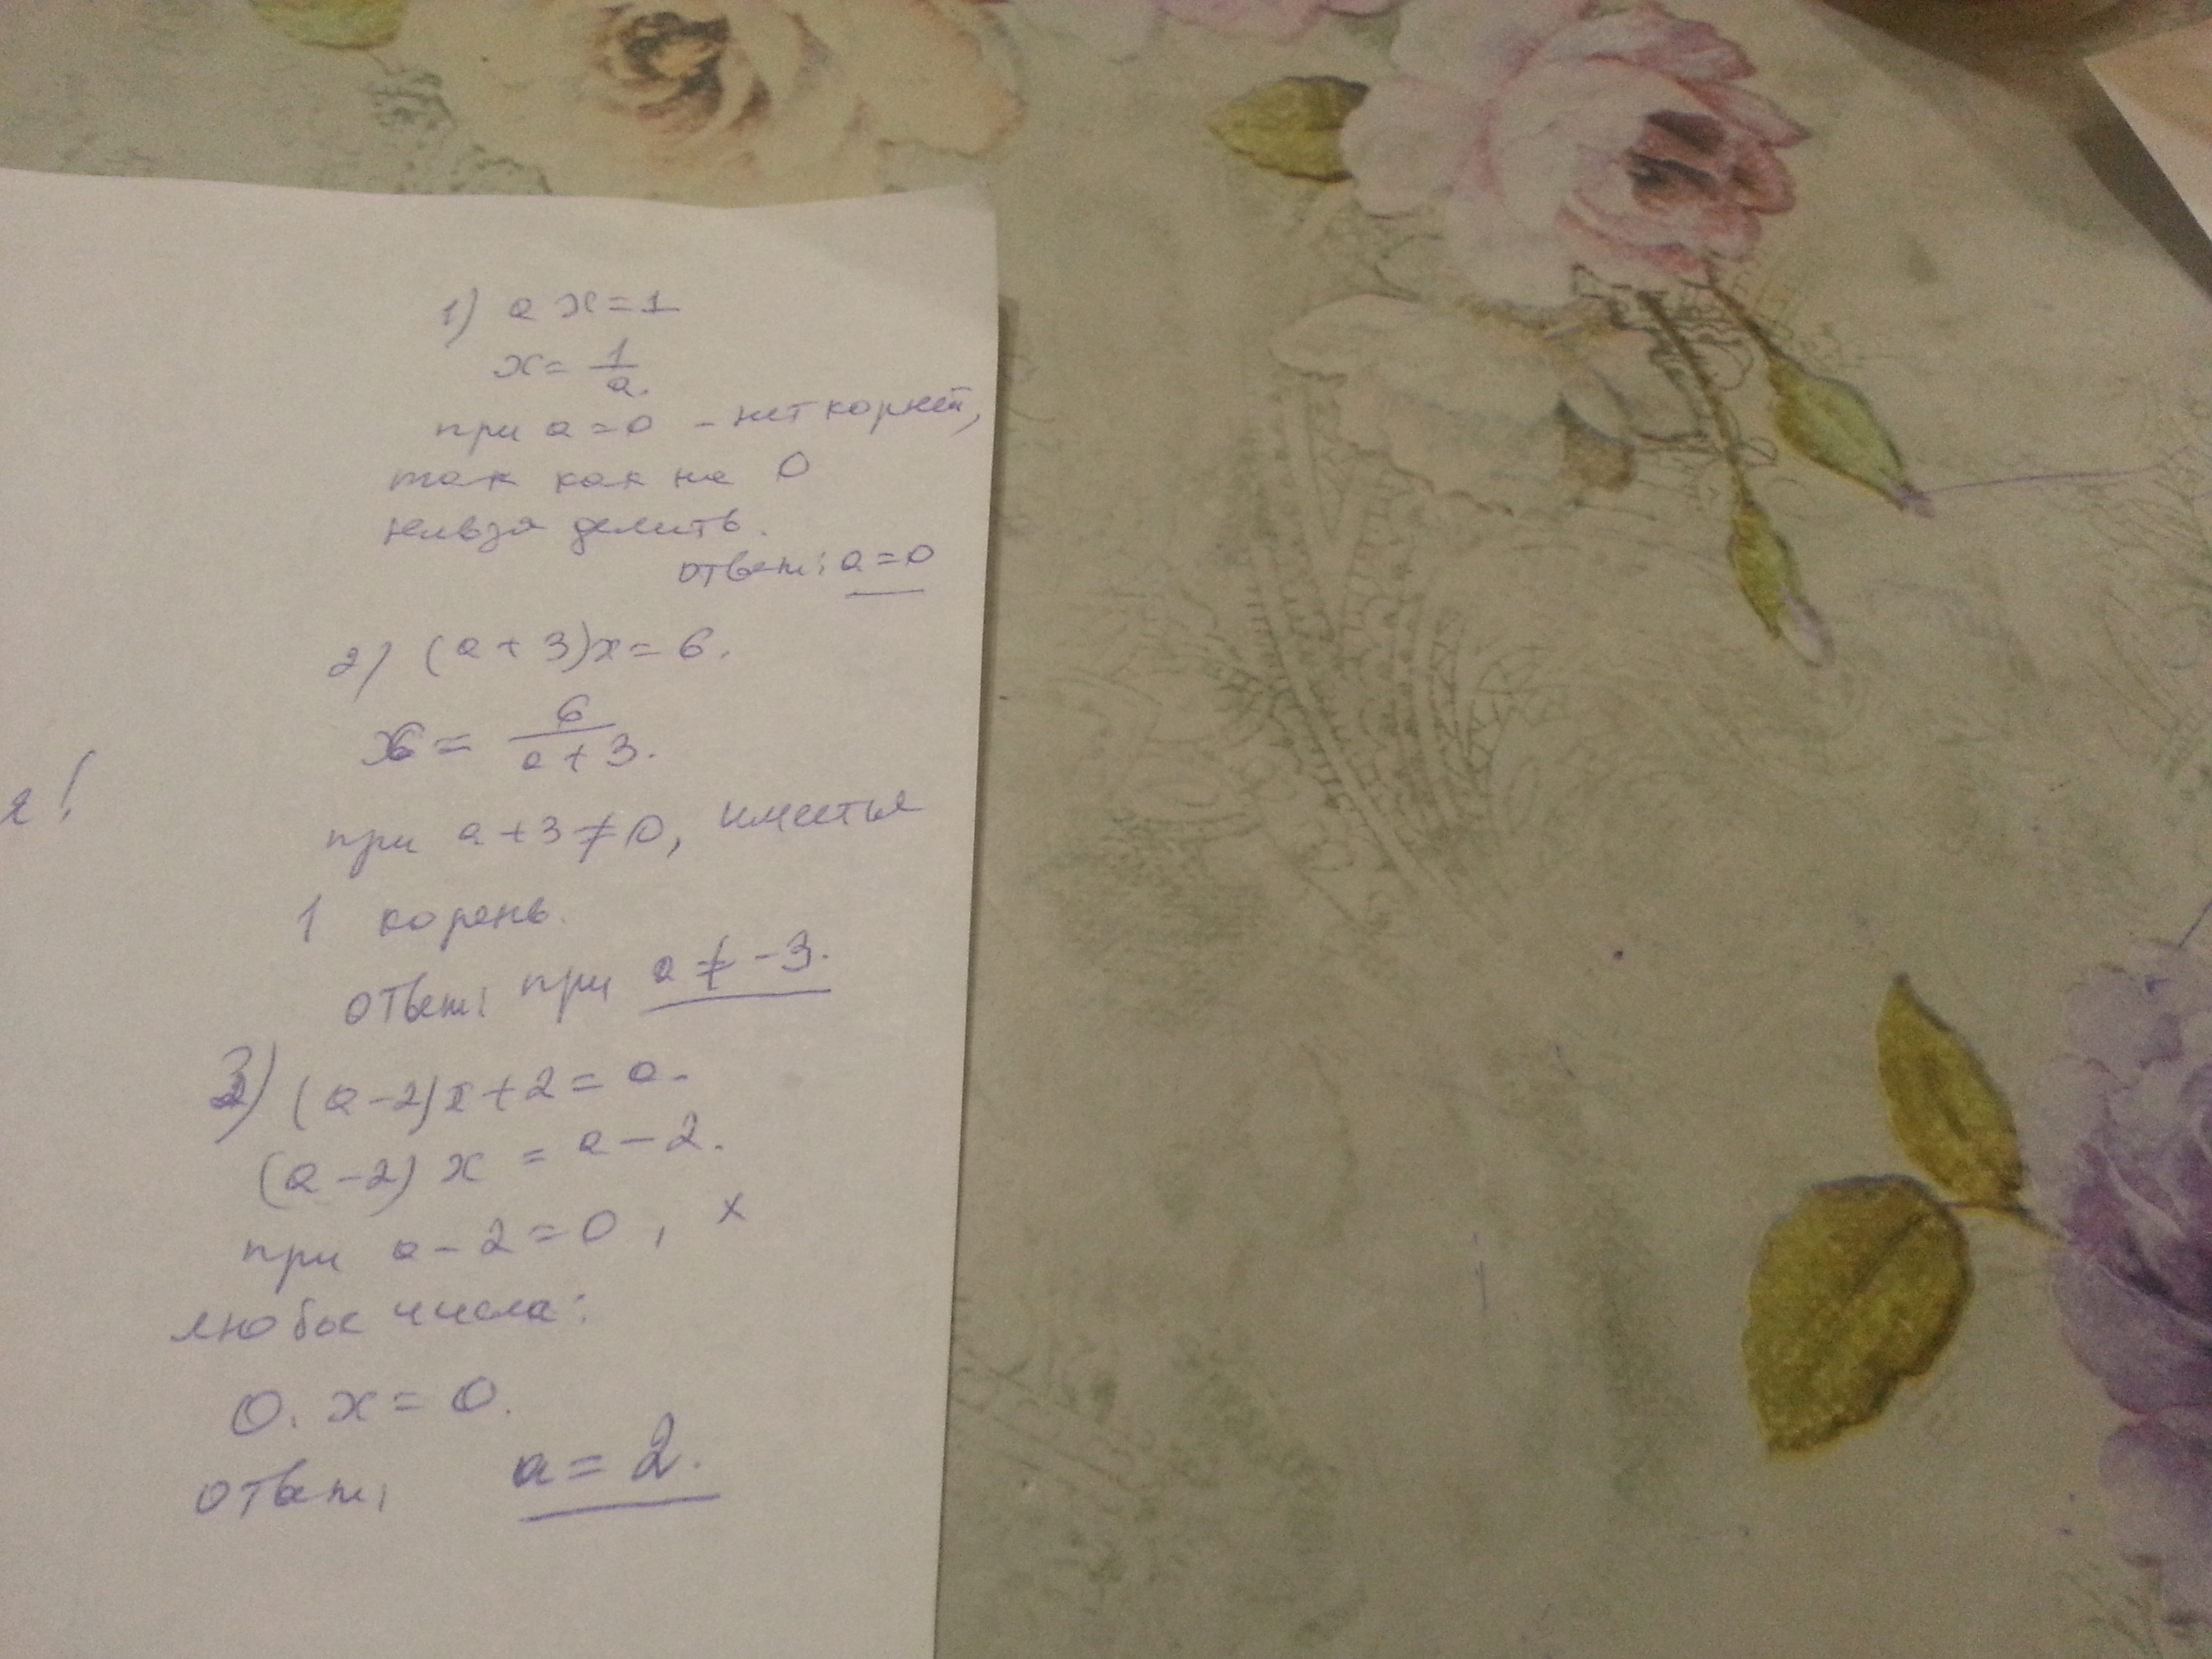 1) ax=1
x= 1/a.
при a=0 - нет корней,
так как на 0
нельзя делить.
ответ: a=0
2) (a+3)x=6.
x= 6/a+3.
при a+3≠0, имеется
я!
1 корень.
ответ: при a≠-3.
3) (a-2)x+2=a.
(a-2)x=a-2.
при a-2=0, x
любое числа:
0.x=0.
ответ: a=2.